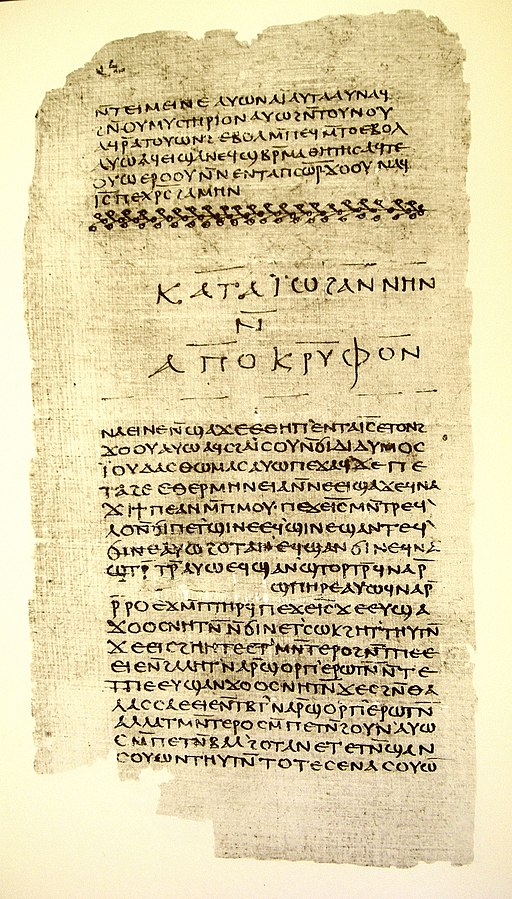 ⲛ̄ⲧⲉⲓⲙⲉⲓⲛⲉ ⲁⲩⲱ ⲛⲁⲓ̈ ⲁⲩⲧⲁⲁⲩ ⲛⲁϥ
ϩⲛ̄ ⲟⲩⲙⲩⲥⲧⲏⲣⲓⲟⲛ ⲁⲩⲱ ϩⲛ̄ ⲧⲟⲩⲛⲟⲩ
ⲁϥⲣ̄ ⲁⲧⲟⲩⲱⲛϩ ⲉⲃⲟⲗ ⲙ̄ⲡⲉϥⲙ̄ⲧⲟ ⲉⲃⲟⲗ
ⲁⲩⲱ ⲁϥⲉⲓ ϣⲁ ⲛⲉϥϣⲃⲣ̄ⲙⲁⲑⲏⲧⲏⲥ ⲁϥⲧⲉ
ⲟⲩⲱ ⲉⲣⲟⲟⲩ ⲛ̄ⲛⲉⲛⲧⲁ ⲡⲥⲱ̅ⲣ̅ ϫⲟⲟⲩ ⲛⲁϥ
ⲓ̅ⲥ̅ ⲡⲉⲭ̅ⲣ̅ⲥ̅ ϩⲁⲙⲏⲛ
ⲕⲁⲧⲁ ⲓ̈ⲱϩⲁⲛⲛⲏⲛ
ⲛ̄
ⲁⲡⲟⲕⲣⲩⲫⲟⲛ
ⲛⲁⲉⲓ ⲛⲉ ⲛ̄ϣⲁϫⲉ ⲉⲑⲏⲡ ⲉⲛⲧⲁ ⲓ̅ⲥ̅ ⲉⲧⲟⲛϩ
ϫⲟⲟⲩ ⲁⲩⲱ ⲁϥⲥϩⲁⲓ̈ⲥⲟⲩ ⲛ̄ϭⲓ ⲇⲓⲇⲩⲙⲟⲥ
ⲓ̈ⲟⲩⲇⲁⲥ ⲑⲱⲙⲁⲥ ⲁⲩⲱ ⲡⲉϫⲁϥ ϫⲉ ⲡⲉ
ⲧⲁϩⲉ ⲉⲑⲉⲣⲙⲏⲛⲉⲓⲁ ⲛ̄ⲛⲉⲉⲓϣⲁϫⲉ ϥⲛⲁ
ϫⲓ ϯⲡⲉ ⲁⲛ ⲙ̄ⲡⲙⲟⲩ ⲡⲉϫⲉ ⲓ̅ⲥ̅ ⲙⲛ̄ⲧⲣⲉϥ
ⲗⲟ ⲛ̄ϭⲓ ⲡⲉⲧϣⲓⲛⲉ ⲉϥϣⲓⲛⲉ ϣⲁⲛⲧⲉϥ
ϭⲓⲛⲉ ⲁⲩⲱ ϩⲟⲧⲁⲛ ⲉϥϣⲁⲛϭⲓⲛⲉ ϥⲛⲁ
ϣⲧⲣ̄ⲧⲣ̄ ⲁⲩⲱ ⲉϥϣⲁⲛϣⲧⲟⲣⲧⲣ̄ ϥⲛⲁⲣ̄
ϣⲡⲏⲣⲉ ⲁⲩⲱ ϥⲛⲁⲣ̄
ⲣ̄ⲣⲟ ⲉϫⲙ̄ ⲡⲧⲏⲣϥ ⲡⲉϫⲉ ⲓ̅ⲥ̅ ϫⲉ ⲉⲩϣⲁ
ϫⲟⲟⲥ ⲛⲏⲧⲛ̄ ⲛ̄ϭⲓ ⲛⲉⲧⲥⲱⲕ ϩⲏⲧ ⲧⲏⲩⲧⲛ̄
ϫⲉ ⲉⲓⲥϩⲏⲏⲧⲉ ⲉⲧⲙⲛ̄ⲧⲉⲣⲟ ϩⲛ̄ ⲧⲡⲉ ⲉ
ⲉⲓⲉ ⲛ̄ϩⲁⲗⲏⲧ ⲛⲁⲣ̄ ϣⲟⲣⲡ ⲉⲣⲱⲧⲛ̄ ⲛ̄ⲧⲉ
ⲧⲡⲉ ⲉⲩϣⲁⲛϫⲟⲟⲥ ⲛⲏⲧⲛ̄ ϫⲉ ⲥϩⲛ̄ ⲑⲁ
ⲗⲁⲥⲥⲁ ⲉⲉⲓⲉ ⲛ̄ⲧⲃⲧ ⲛⲁⲣ̄ ϣⲟⲣⲡ ⲉⲣⲱⲧⲛ̄
ⲁⲗⲗⲁ ⲧⲙⲛ̄ⲧⲉⲣⲟ ⲥⲙ̄ⲡⲉⲧⲛ̄ϩⲟⲩⲛ ⲁⲩⲱ
ⲥⲙ̄ⲡⲉⲧⲛ̄ⲃⲁⲗ ϩⲟⲧⲁⲛ ⲉⲧⲉⲧⲛ̄ϣⲁⲛ
ⲥⲟⲩⲱⲛ ⲧⲏⲩⲧⲛ̄ ⲧⲟⲧⲉ ⲥⲉⲛⲁⲥⲟⲩⲱ